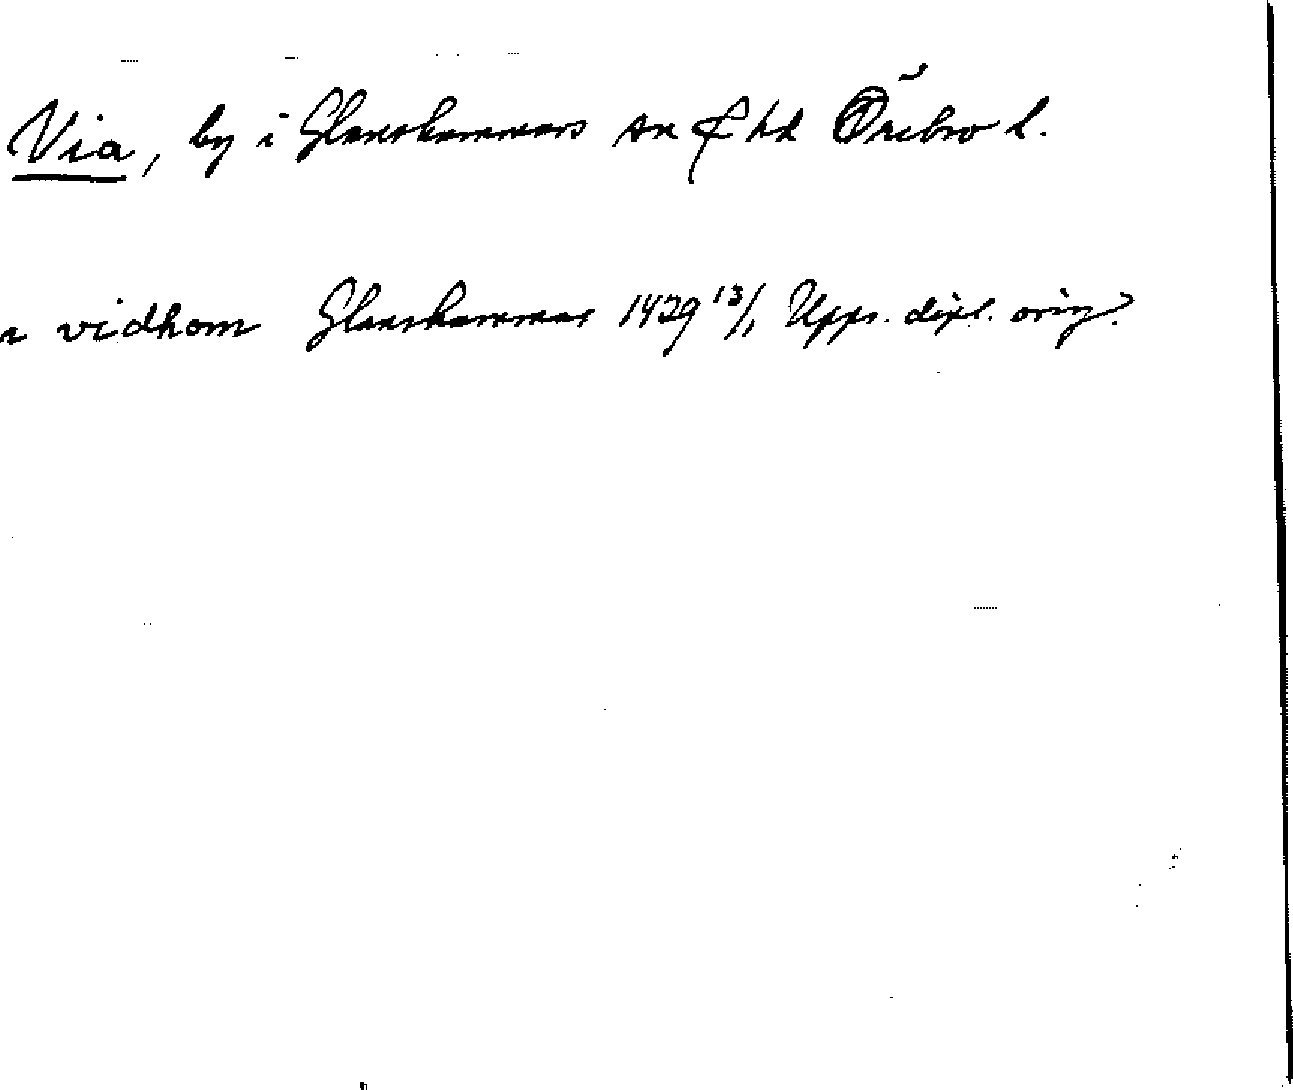 Via, by i Glanshammars sn & hd Örebro l.
vidhom Glanshammar 1429 13/1 Upps. dipl. orig.